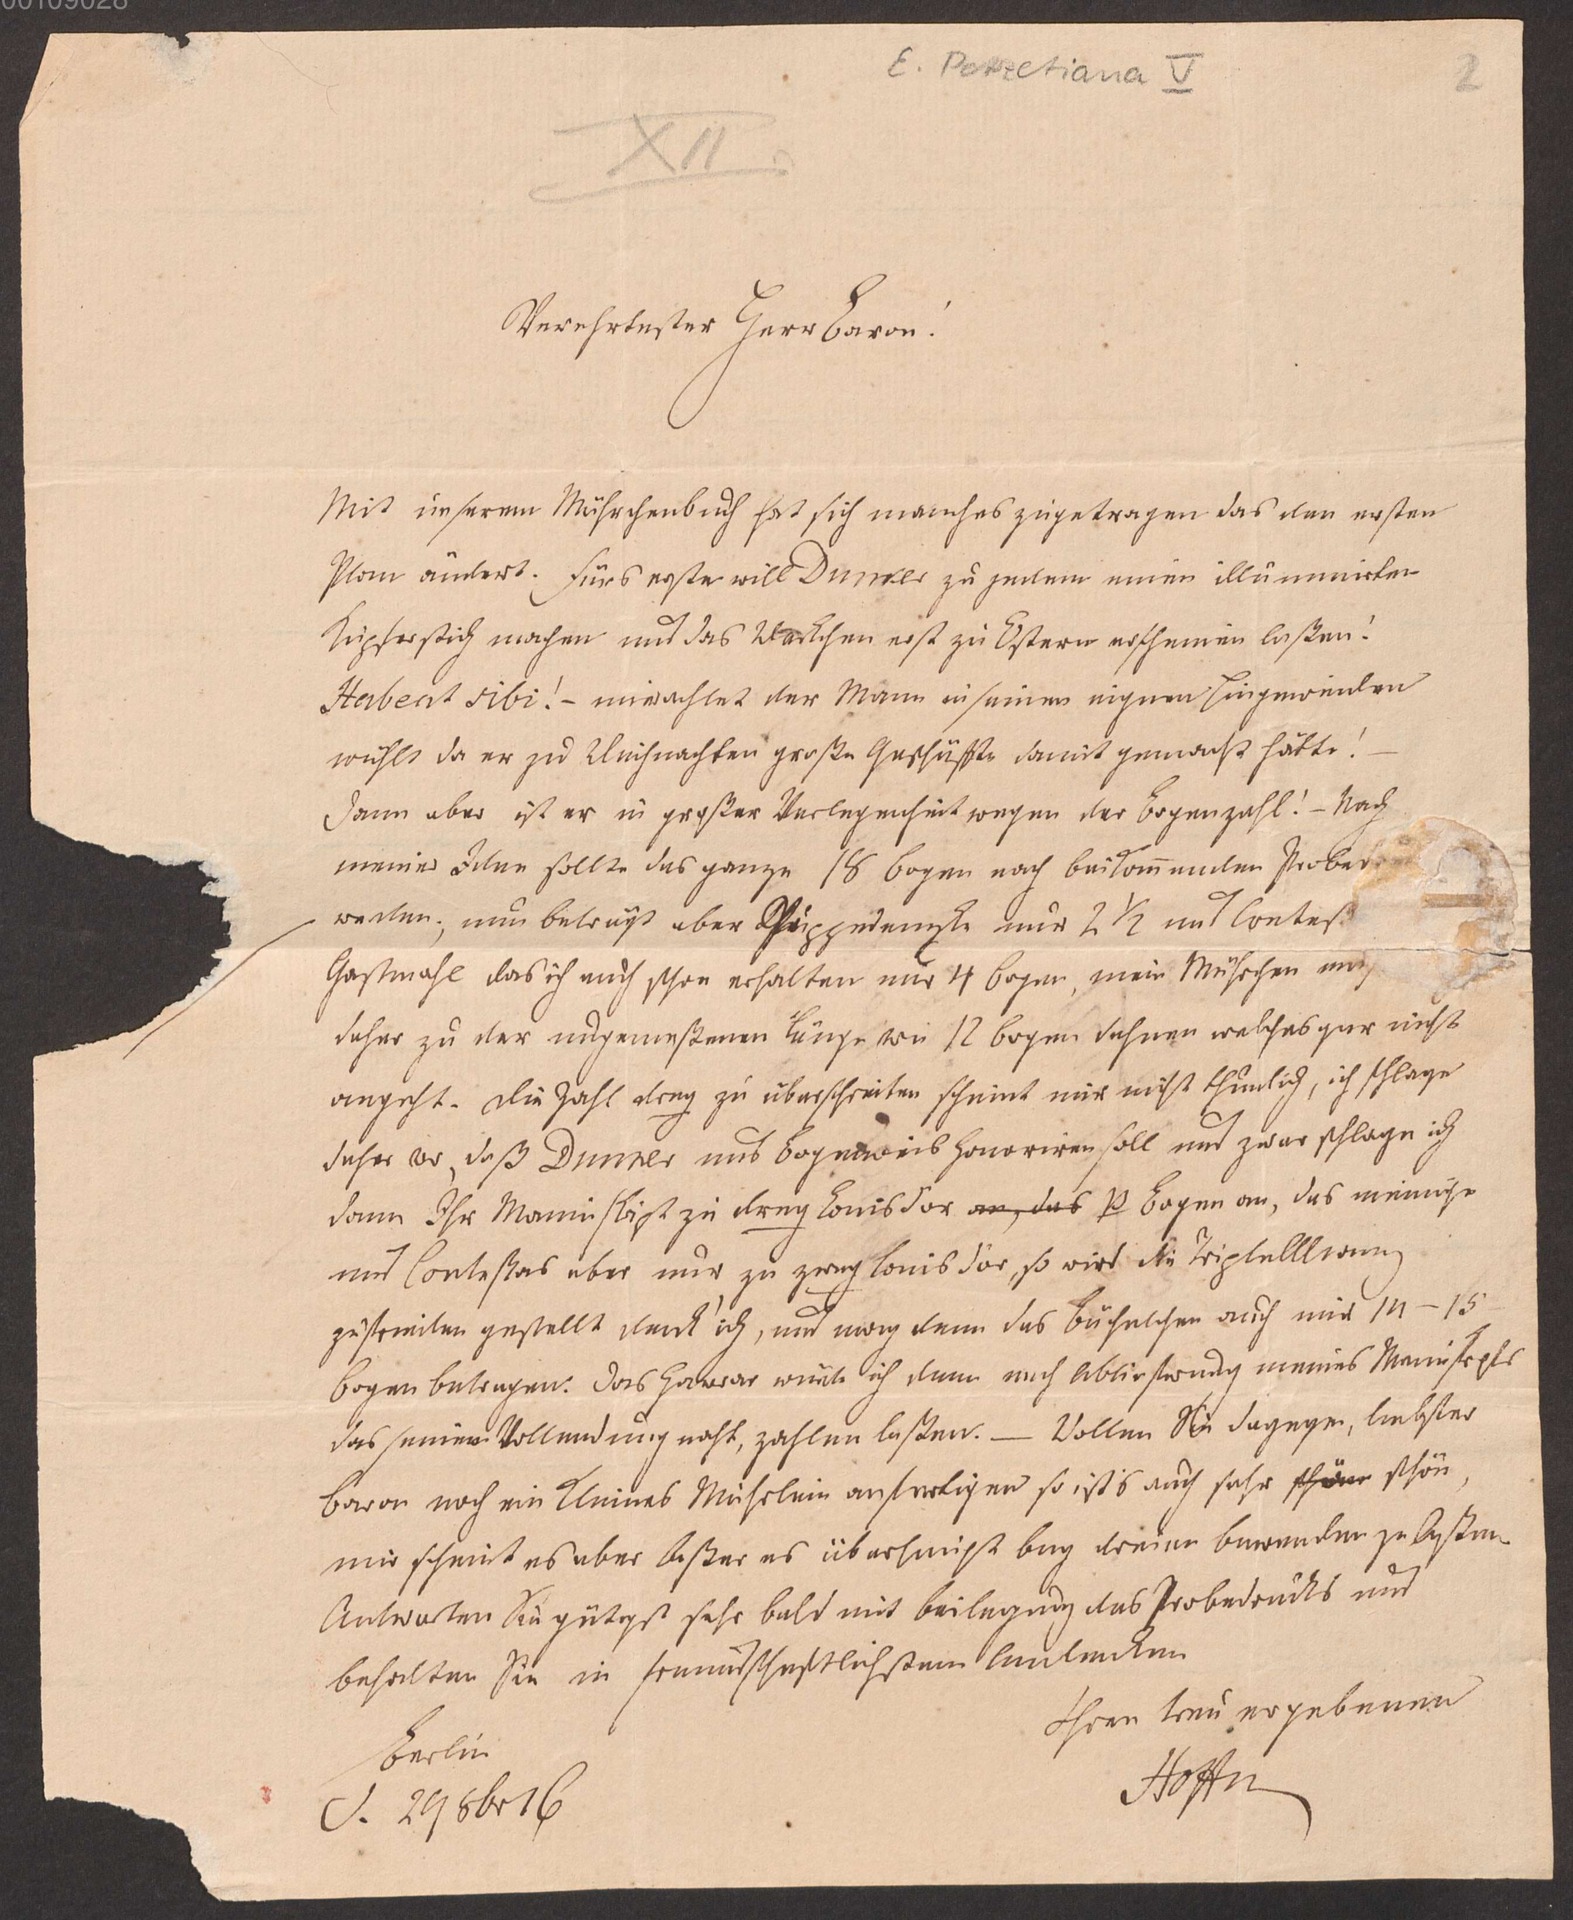 00109028
E. Petzetiana V
2
XII.
Verehrtester Herr Baron!
Mit unserem Mährchenbuch hat sich manches zugetragen das den ersten
Plan ändert. Fürs erste will Dunker zu jedem einen illuminirten
Kupferstich machen und das Werkchen erst zu Ostern erscheinen laßen!
Habeat sibi! – unerachtet der Mann in seinen eignen Eingeweiden
wühlt da er zu Weihnachten große Geschäffte damit gemacht hätte! –
Dann aber ist er in großer Verlegenheit wegen der Bogenzahl! – Nach
meiner Idee sollte das ganze 18 Bogen nach beikommenden Probe
werden, nun beträgt aber nur 2 1/2 und Conteß
Gastmahl das ich auch schon erhalten nur 4 Bogen, mein Mährchen
daher zu der ungemeßenen Länge von 12 Bogen dehnen welches gar nicht
angeht. Die Zahl drey zu überschreiten scheint mir nicht thunlich, ich schlage
daher vor, daß Dunker uns Bogenweis honoriren soll und zwar schlage ich
dann Ihr Manuskript zu drey Louisdor an, das p Bogen an, das meinige
und Conteßas aber nur zu zwey Louis dor, so wird die
zufrieden gestellt denk' ich, und mag denn das Büchelchen auch nur 14 – 15
Bogen betragen. Das Honorar würde ich denn nach Ablieferung meines Manuskpts
das seiner Vollendung naht, zahlen laßen. — Wollen Sie dagegen, liebster
Baron noch ein kleines Mährlein anfertigen so ist's auch sehr schön schön,
mir scheint es aber beßer es überhaupt bey dreien bewenden zu laßen.
Antworten Sie gütigst sehr bald mit Beilegung des Probedrucks und
behalten Sie in freundschaftlichstem Andenken
Ihren treu ergebenen
Hoffm
Berlin
d. 29 8br 16